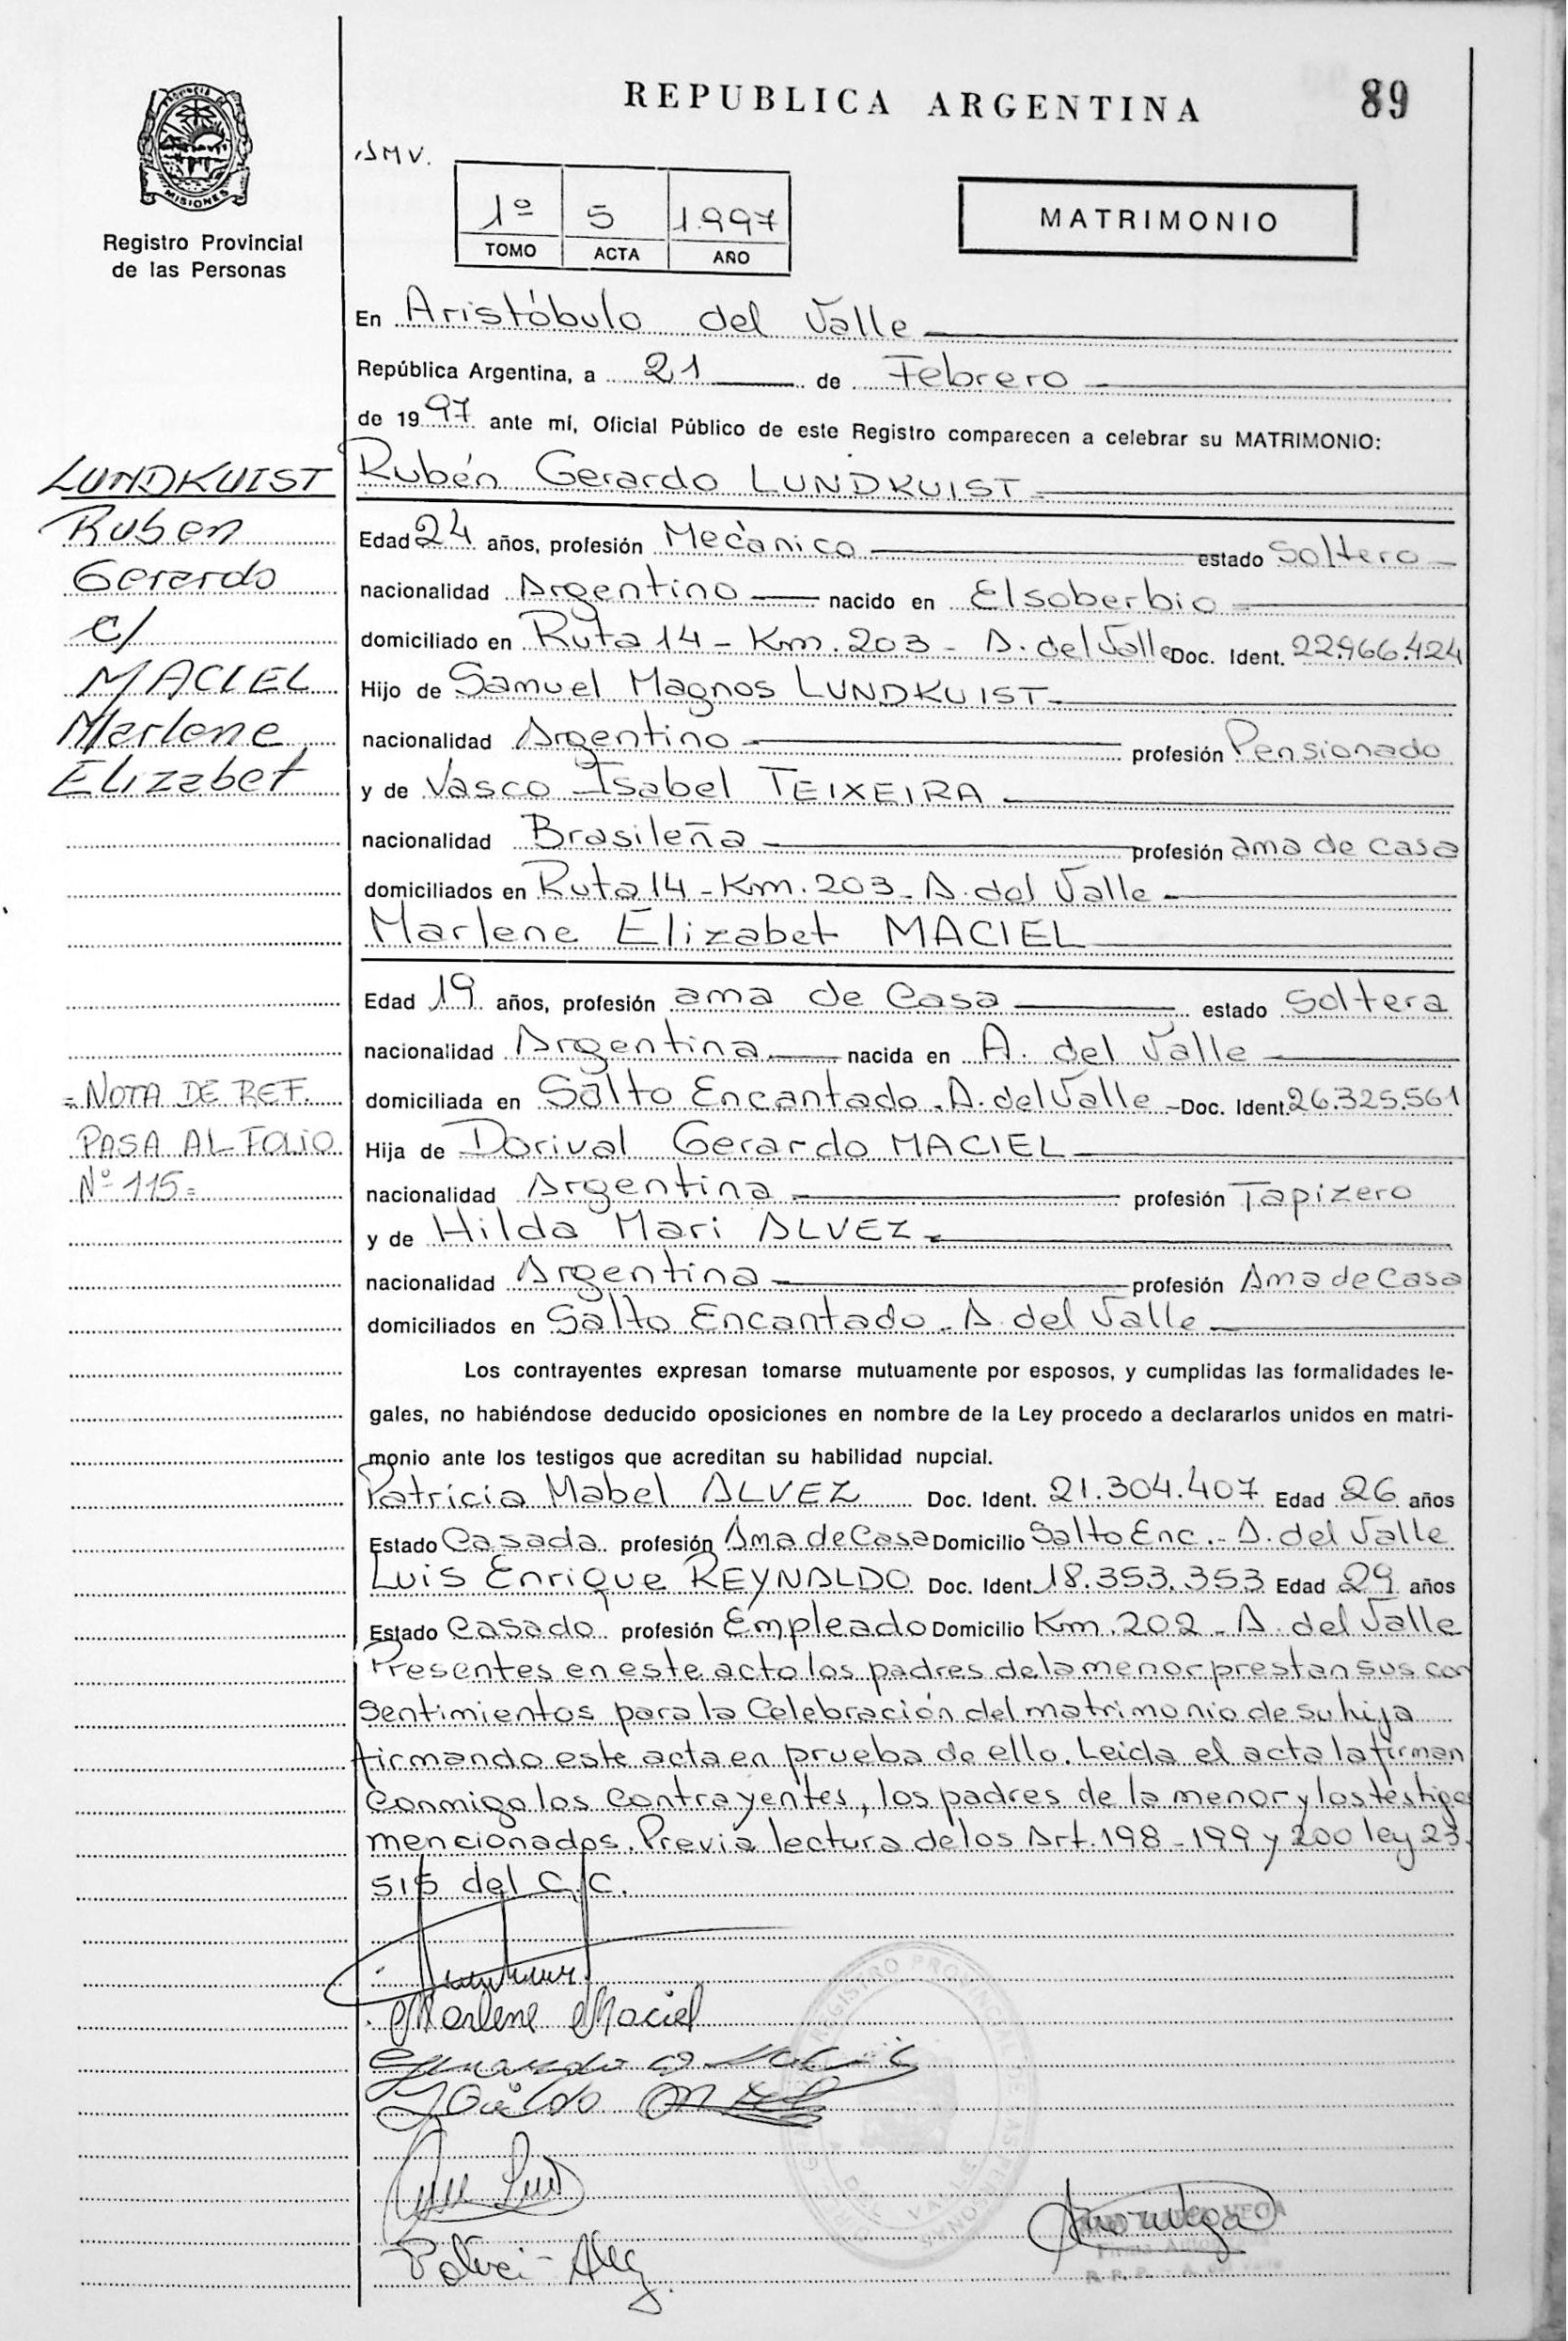 REPUBLICA ARGENTINA 89
PROVINCIA DE
MISIONES
Registro Provincial
de las Personas
SMV.
1º 5 1.997
TOMO ACTA AÑO
MATRIMONIO
En Aristóbulo del Valle
República Argentina, a 21 de Febrero
de 1997 ante mí, Oficial Público de este Registro comparecen a celebrar su MATRIMONIO:
LUNDKUIST
Ruben
Gerardo
c/
MACIEL
Marlene
Elizabet
Rubén Gerardo LUNDKUIST
Edad 24 años, profesión Mecánico estado Soltero
nacionalidad Argentino nacido en Elsoberbio
domiciliado en Ruta 14 - Km. 203 - A. del Valle Doc. Ident. 22.966.424
Hijo de Samuel Magnos LUNDKUIST
nacionalidad Argentino profesión Pensionado
y de Vasco Isabel TEIXEIRA
nacionalidad Brasileña profesión ama de casa
domiciliados en Ruta 14 - Km. 203 - A. del Valle
Marlene Elizabet MACIEL
Edad 19 años, profesión ama de Casa estado Soltera
nacionalidad Argentina nacida en A. del Valle
domiciliada en Salto Encantado - A. del Valle - Doc. Ident. 26.325.561
Hija de Dorival Gerardo MACIEL
nacionalidad Argentina profesión Tapizero
y de Hilda Mari ALVEZ
nacionalidad Argentina profesión Ama de Casa
domiciliados en Salto Encantado - A. del Valle
= NOTA DE REF.
PASA AL FOLIO
Nº 115 =
Los contrayentes expresan tomarse mutuamente por esposos, y cumplidas las formalidades le-
gales, no habiéndose deducido oposiciones en nombre de la Ley procedo a declararlos unidos en matri-
monio ante los testigos que acreditan su habilidad nupcial.
Patricia Mabel ALVEZ Doc. Ident. 21.304.407 Edad 26 años
Estado Casada profesión Ama de Casa Domicilio Salto Enc. - A. del Valle
Luis Enrique REYNALDO Doc. Ident. 18.353.353 Edad 29 años
Estado Casado profesión Empleado Domicilio Km. 202 - A. del Valle
Presentes en este acto los padres de la menor prestan sus con
sentimientos para la Celebración del matrimonio de su hija
firmando este acta en prueba de ello. Leida el acta la firman
conmigo los contrayentes, los padres de la menor y los testigos
mencionados. Previa lectura de los Art. 198 - 199 y 200 ley 23.
515 del C.C.
Marlene Maciel
REGISTRO PROVINCIAL DE LAS PERSONAS
VEGA